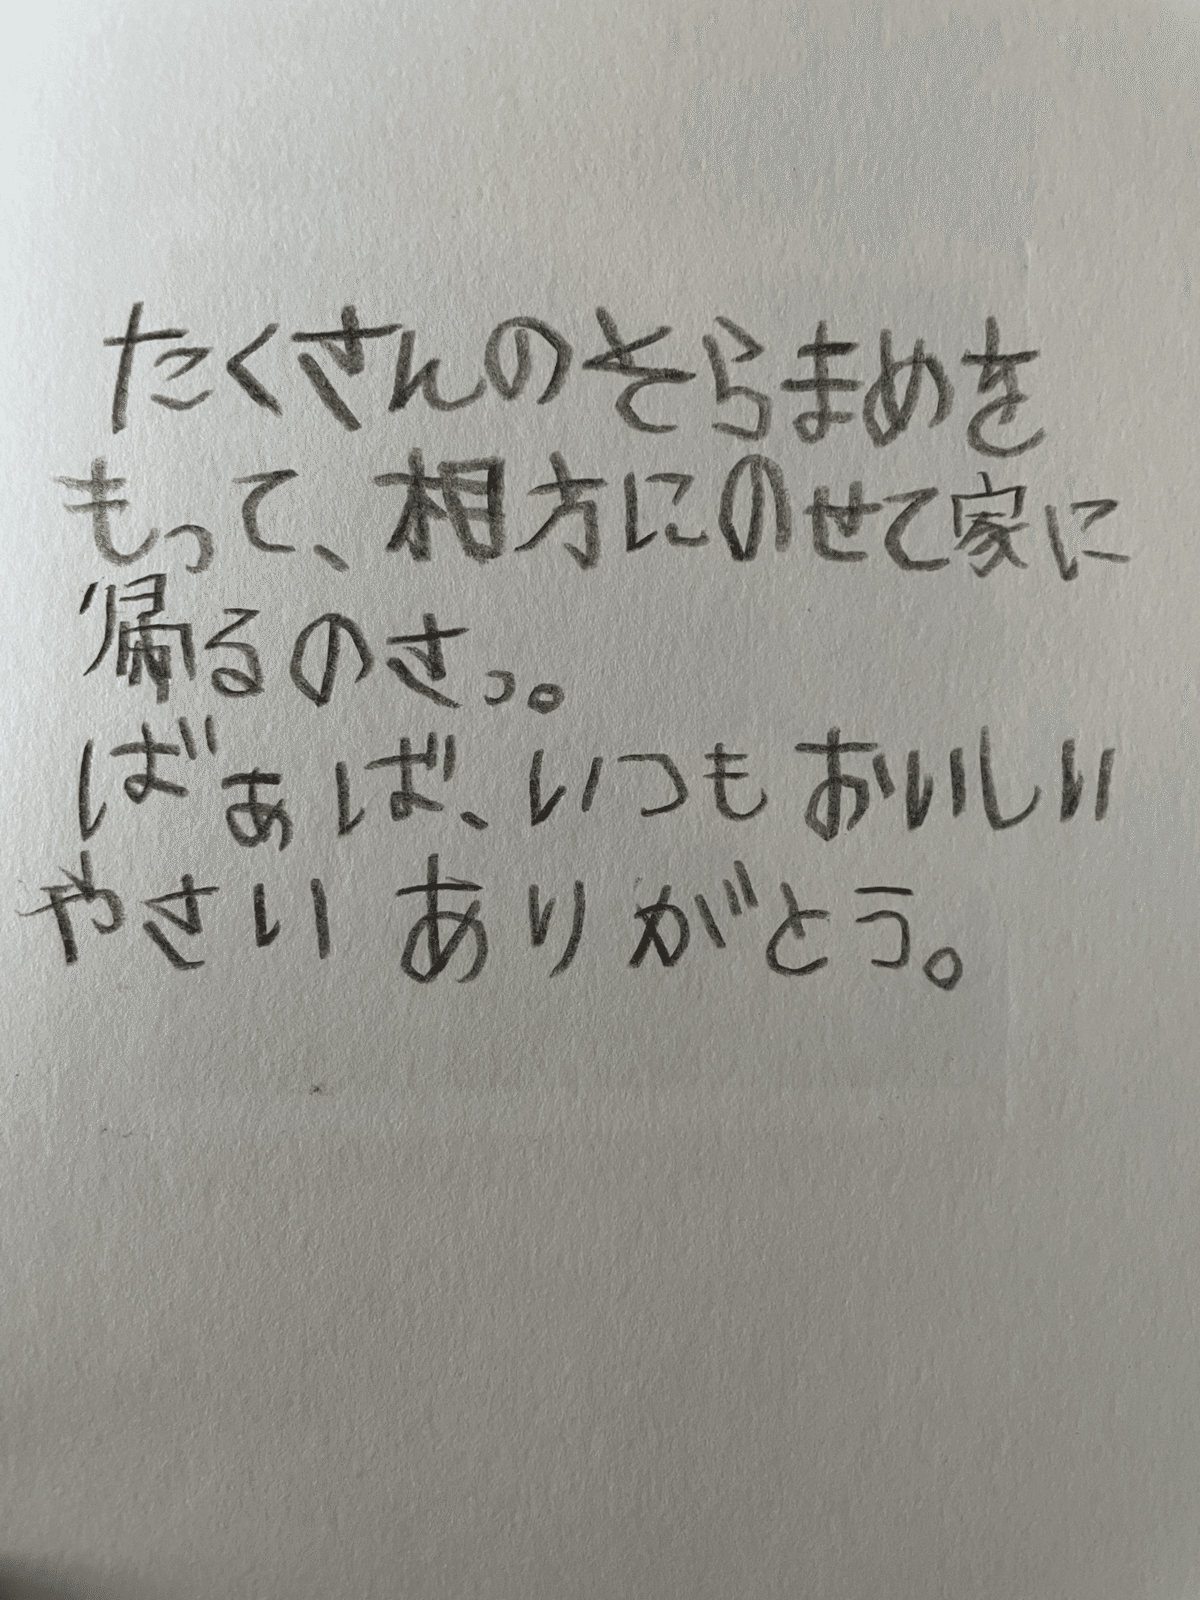 たくさんのそらまめを
もって、相方にのせて家に
帰るのさっ。
ばぁば、いつもおいしい
やさいありがとう。